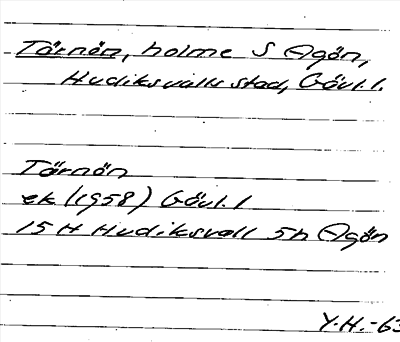 Tärnön, holme S Agön,
Hudiksvalls stad, Gävl. l.
Tärnön
ek (1958) Gävl. l
15 H Hudiksvall 5h Agön
Y.H.-63